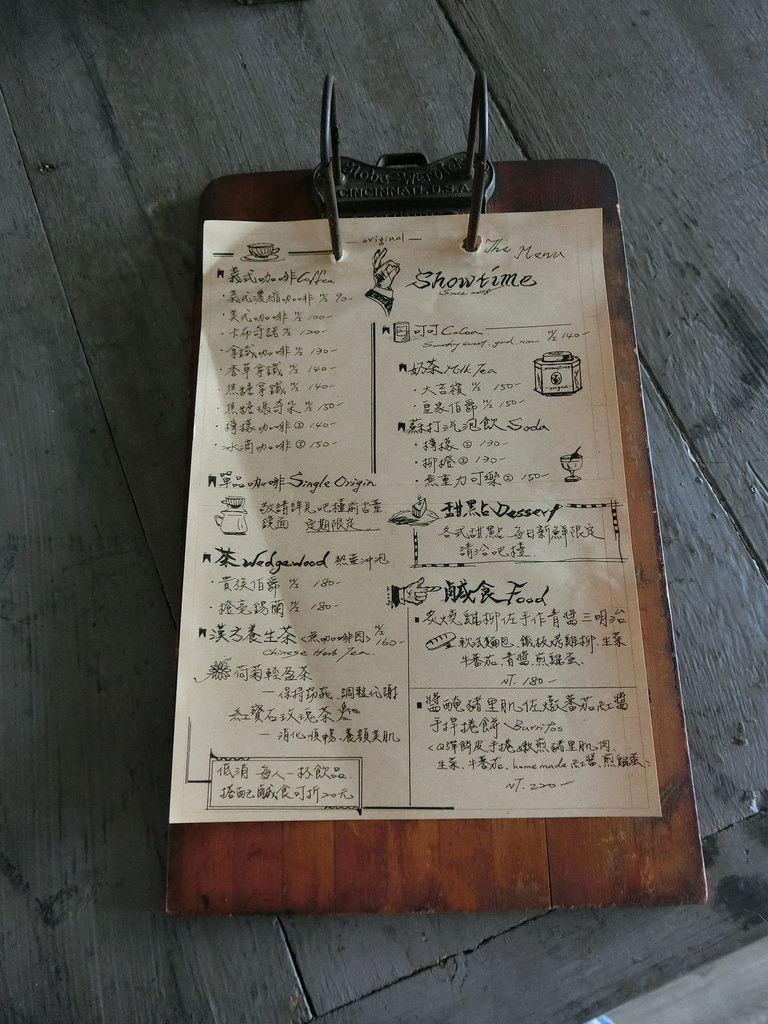 Globe-Wernicke
CINCINNATI, U.S.A.
original
The Menu
Showtime
義式咖啡 Coffee
・義式濃縮咖啡 H/I 90-
・美式咖啡 H/I 100-
・卡布奇諾 H/I 120-
・拿鐵咖啡 H/I 130-
・香草拿鐵 H/I 140-
・焦糖拿鐵 H/I 140-
・焦糖瑪奇朵 H/I 150-
・檸檬咖啡 Ⓘ 140-
・冰滴咖啡 Ⓘ 150-
單品咖啡 Single Origin
敬請詳見吧檯前古董
鏡面 定期限定
茶 Wedgewood 熱壺沖泡
・貴族伯爵 H/I 180-
・橙毫錫蘭 H/I 180-
漢方養生茶<無咖啡因> H/I 160-
Chinese Herb Tea
荷菊輕盈茶
— 保持窈窕、調整代謝
紅寶石玫瑰茶
— 消化順暢、養顏美肌
低消 每人一杯飲品
搭配鹹食可折20元
可可 Cocoa H/I 140-
奶茶 Milk Tea
・大吉嶺 H/I 150-
・皇家伯爵 H/I 150-
蘇打汽泡飲 Soda
・檸檬 Ⓘ 130-
・柳橙 Ⓘ 130-
・無重力可樂 Ⓘ 150-
甜點 Dessert
各式甜點 每日新鮮限定
請洽吧檯
鹹食 Food
炙燒雞柳佐手作青醬三明治
軟法麵包、鐵板烤雞柳、生菜
牛蕃茄、青醬、煎雞蛋
NT. 180-
醬醃豬里肌佐燉蕃茄紅醬
手捍捲餅 Burritos
<Q彈餅皮手捲、嫩煎豬里肌肉、
生菜、牛蕃茄、homemade紅醬、煎雞蛋>
NT. 220-